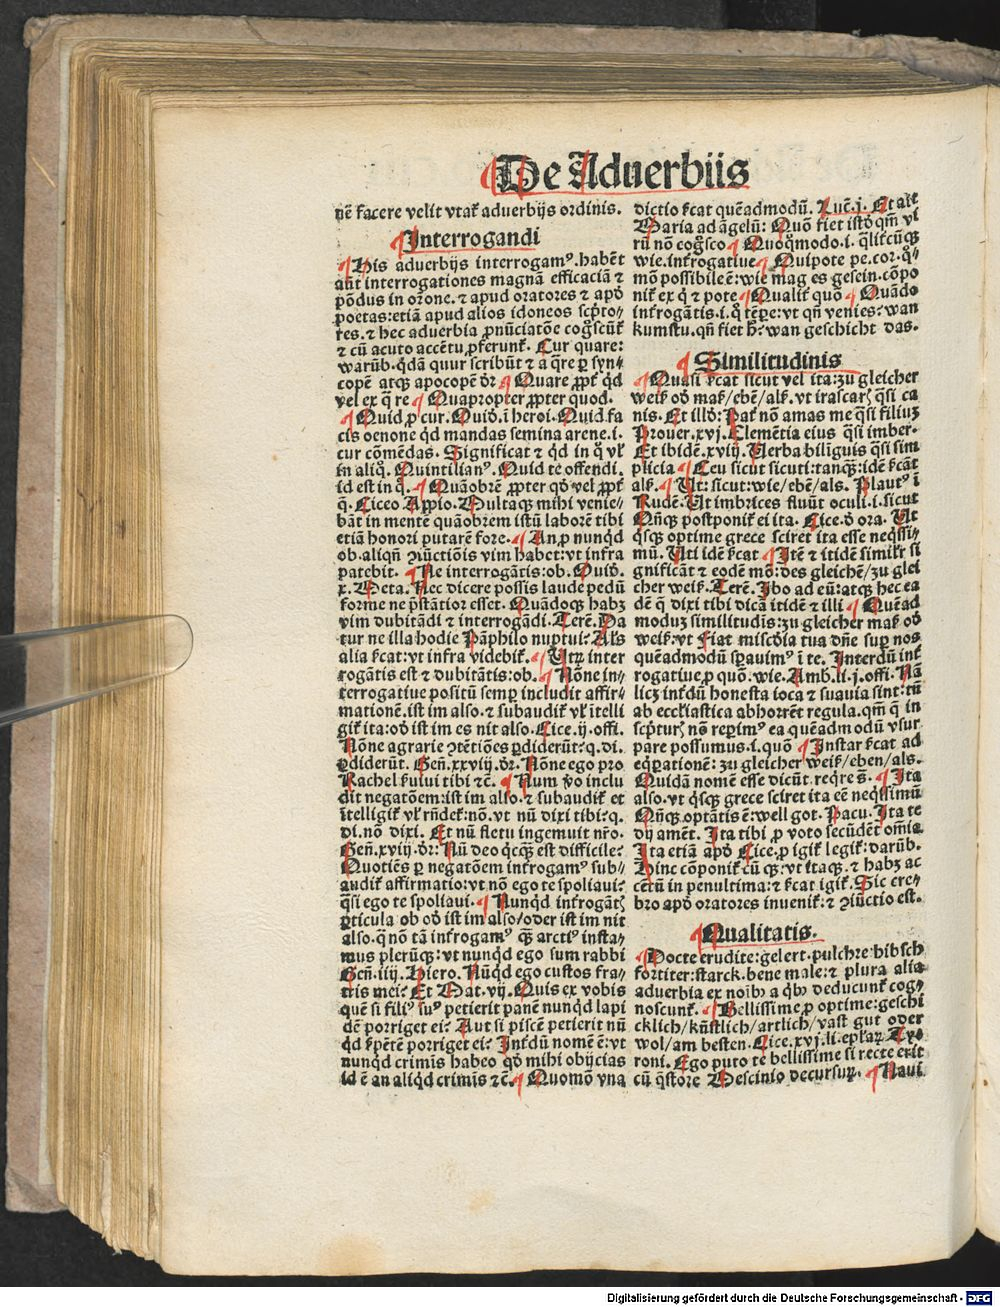 De Aduerbiis
nē facere velit vtaƚ aduerbijs ordinis.
Interrogandi
His aduerbijs interrogamꝰ. habēt
aūt interrogationes magnā efficaciā ⁊
pōdus in oꝛōne. ⁊ apud oratores ⁊ apō
poetas: etiā apud alios idoneos scp̄to⸗
res. ⁊ hec aduerbia pnūciatōe cog̊scūt̄
⁊ cū acuto accētu ꝓferunt̄. Cur quare:
warūb. q̇dā quur scribūt ⁊ a q̄re ꝑ syn⸗
copē atqꝫ apocopē dr̄ Quare ꝓpt̄ q̇d
vel ex q̄ re Quapropter ꝓpter quod.
Quid ꝓ cur. Ouid. ī heroi. Quid fa
cis oenone q̇d mandas semina arene. i.
cur cōmēdas. Significat ⁊ q̇d in q̄ vƚ
in aliq̊. Quintilianꝰ. Quid te offendi.
id est in q̊. Quāobrē ꝓpter qd̓ vel ꝓpt̄
q̄. Ciceo Appio. Multaqꝫ mihi venie⸗
bāt in mentē quāobrem istū laborē tibi
etiā honori putarē fore. An ꝓ nunq̇d
ob. aliqn̄ ꝯiūctiōis vim habet: vt infra
patebit. Ne interrogātis: ob. Ouid.
x. Meta. Nec dicere possis laude pedū
forme ne p̄stātior esset. Quādoqꝫ habꝫ
vim dubitādi ⁊ interrogādi. Terē. Da
tur ne illa hodie Pāphilo nuptui? Als
alia s̄cat: vt infra videbit̄. Vtꝝ inter
rogātis est ⁊ dubitātis: ob. Nōne in⸗
terrogatiue positū semꝑ includit affir⸗
mationē. ist im also. ⁊ subaudit̄ vƚ ītelli
git̄ ita: od̓ ist im es nit also. Cice. ij. offi.
Nōne agrarie ꝯtētiōes ꝑdiderūt? q. di.
ꝑdiderūt. Geñ. xxviij. dr̄. Nōne ego pro
Rachel s̄uiui tibi ⁊c̄. Num v̊o inclu
dit negatōem: ist im also. ⁊ subaudit̄ et
ītelligit̄ vƚ rn̄det̄: nō. vt nū dixi tibi? q.
di. nō dixi. Et nū fletu ingemuit nr̄o.
Geñ. xviij. dr̄: Nū deo q̇cqꝫ est difficile?
Quotiēs ꝑ negatōem int̄rogamꝰ sub⸗
audit̄ affirmatio: vt nō ego te spoliaui?
q̄si ego te spoliaui. Nunq̇d int̄rogāt̄
ꝑticula ob od̓ ist im also/oder ist im nit
also. q̄ nō tā int̄rogamꝰ qꝫ arctiꝰ insta⸗
mus plerūqꝫ: vt nunq̇d ego sum rabbi
Geñ. iiij. Hiero. Nūq̇d ego custos fra⸗
tris mei? Et Mat. vij. Quis ex vobis
quē si filiꝰ suꝰ petierit panē nunq̇d lapi
dē porriget ei? Aut si piscē petierit nū
q̇d s̄pētē porriget ei? Int̄dū nomē ē: vt
nunq̇d crimīs habeo qd̓ mihi obijcias
id ē an aliq̇d crimis ⁊c̄. Quomō vna
dictio s̄cat quēadmodū. Luc̄. j. Et ait
Maria ad āgelū: Quō fiet istd̓ qm̄ vi
rū nō cog̊sco Quoq̊modo. i. q̄lit̄cūqꝫ
wie. int̄rogatiue Quipote pe. cor. q̊⸗
mō possibile ē: wie mag es gesein. cōpo
nit̄ ex q̇ ⁊ pote Qualit̄ quō Quādo
int̄rogātis. i. q̊ tēpe: vt qn̄ venies? wan
kumstu. qn̄ fiet h̄? wan geschicht das.
Similitudinis
Quasi s̄cat sicut vel ita: zu gleicher
weiß od̓ maß/ebē/als. vt irascar̄ q̄si ca
nis. Et illd̓: Pat̄ nō amas me q̄si filiuꝫ
Prouer. xvj. Clemētia eius q̄si imber.
Et ibidē. xviij. Verba bilīguis q̄si sim
plicia Ceu sicut sicuti: tanqꝫ: idē s̄cāt
als. Vt: sicut: wie/ebē/als. Plautꝰ ī
Rudē. Vt imbrices fluūt oculi. i. sicut
Qn̄qꝫ postponit̄ ei ita. Cice. d̓ ora. Ut
q̇sqꝫ optime grece sciret ita esse neq̄ssi⸗
mū. Vti idē s̄cat Itē ⁊ itidē simiƚr si
gnificāt ⁊ eodē mō: des gleichē/zu glei
cher weiß. Terē. Ibo ad eū: atqꝫ hec ea
dē q̄ dixi tibi dicā itidē ⁊ illi Quēad
moduꝫ similitudīs: zu gleicher maß od̓
weiß: vt Fiat miscd̓ia tua dn̄e suꝑ nos
quēadmodū sꝑauimꝰ ī te. Interdū int̄
rogatiue ꝓ quō. wie. Amb. li. j. offi. Nā
licꝫ int̄dū honesta ioca ⁊ suauia sint: tn̄
ab eccƚiastica abhorrēt regula. qm̄ q̄ in
scp̄turꝭ nō reꝑimꝰ ea quēadmodū vsur
pare possumus. i. quō Instar s̄cat ad
eq̄rationē: zu gleicher weiß/eben/als.
Quidā nomē esse dicūt. reqr̄e s̄. Ita
also. vt q̇sqꝫ grece sciret ita eē neq̄ssimū
Qn̄qꝫ optātis ē: well got. Pacu. Ita te
dij amēt. Ita tibi ꝓ voto secūdēt om̄ia.
Ita etiā apd̓ Cice. ꝓ igit̄ legit̄: darūb.
Hinc cōponit̄ cū qꝫ: vt itaqꝫ. ⁊ habꝫ ac
cētū in penultima: ⁊ s̄cat igit̄. Sic cre⸗
bro apd̓ oratores inuenit̄: ⁊ ꝯiūctio est.
Qualitatis.
Docte erudite: gelert. pulchre: hibsch
fortiter: starck. bene male: ⁊ plura alia
aduerbia ex noībꝫ a q̇bꝫ deducunt̄ cog⸗
noscunt̄. Bellissime ꝓ optime: geschi
cklich/kūstlich/artlich/vast gut oder
wol/am besten. Cice. xvj. li. ep̄laꝝ Tyo
roni. Ego puto te bellissime si recte erit
cū q̄store Mescinio decursuꝝ. Naui
Digitalisierung gefördert durch die Deutsche Forschungsgemeinschaft - DFG